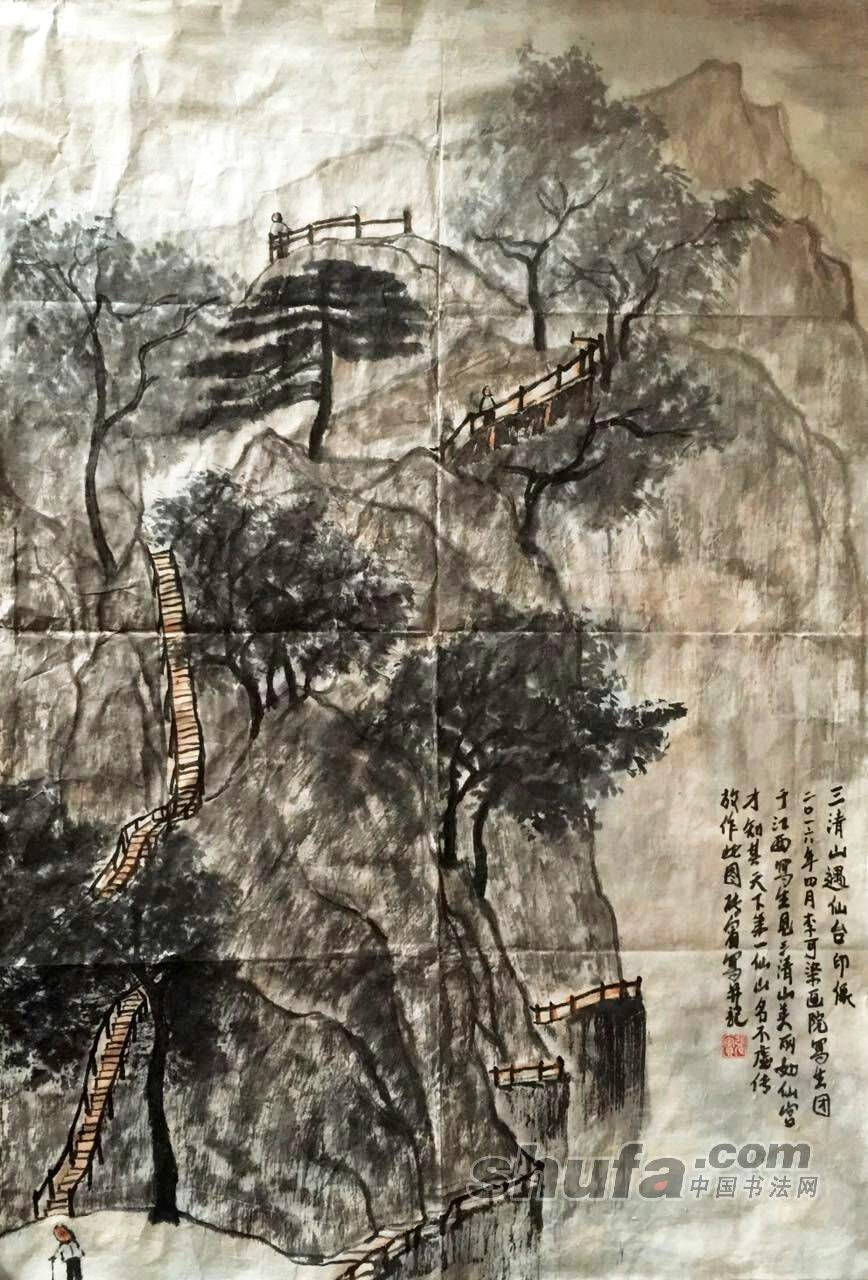 三清山遇仙台印象
二〇一六年四月李可染画院写生团
于江西写生见三清山美丽如仙宫
才知其天下第一仙山名不虚传
故作此图 写并记
shufa.com
中国书法网